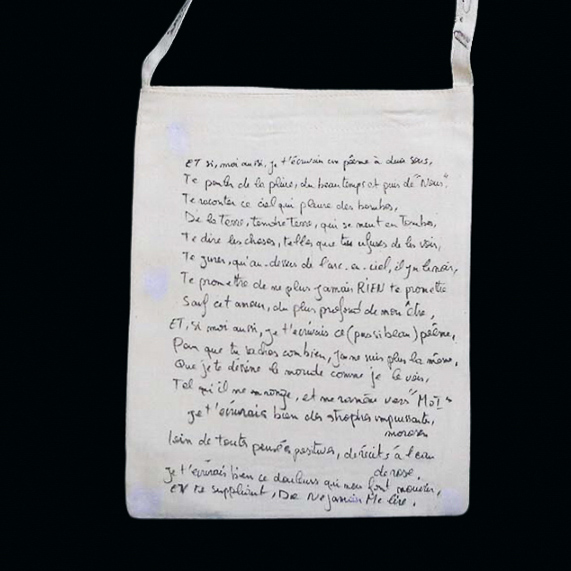 ET si, moi aussi, je t'écrivais un poème à deux sous,
Te parler de la pluie, du beau temps et puis de "Nous".
Te raconter ce ciel qui pleure des bombes,
De la Terre, tendre Terre, qui se meut en Tombes,
Te dire les choses, telles que tu refuses de les voir,
Te jurer, qu'au-dessus de l'arc-en-ciel, il y a le noir,
Te promettre de ne plus jamais RIEN te promettre
Sauf cet amour, du plus profond de mon être,
ET, si moi aussi, je t'écrivais ce (pas si beau) poème,
Pour que tu saches combien, je ne suis plus la même,
Que je te dessine le monde comme je le vois,
Tel qu'il me mange, et me ramène vers "MOI"
Je t'écrirais bien des strophes impuissantes,
moroses
loin de toutes pensées positives, de récits à l'eau
de rose,
Je t'écrirais bien ce douleurs qui nous font mourir,
En te suppliant, De Ne jamais Me lire.